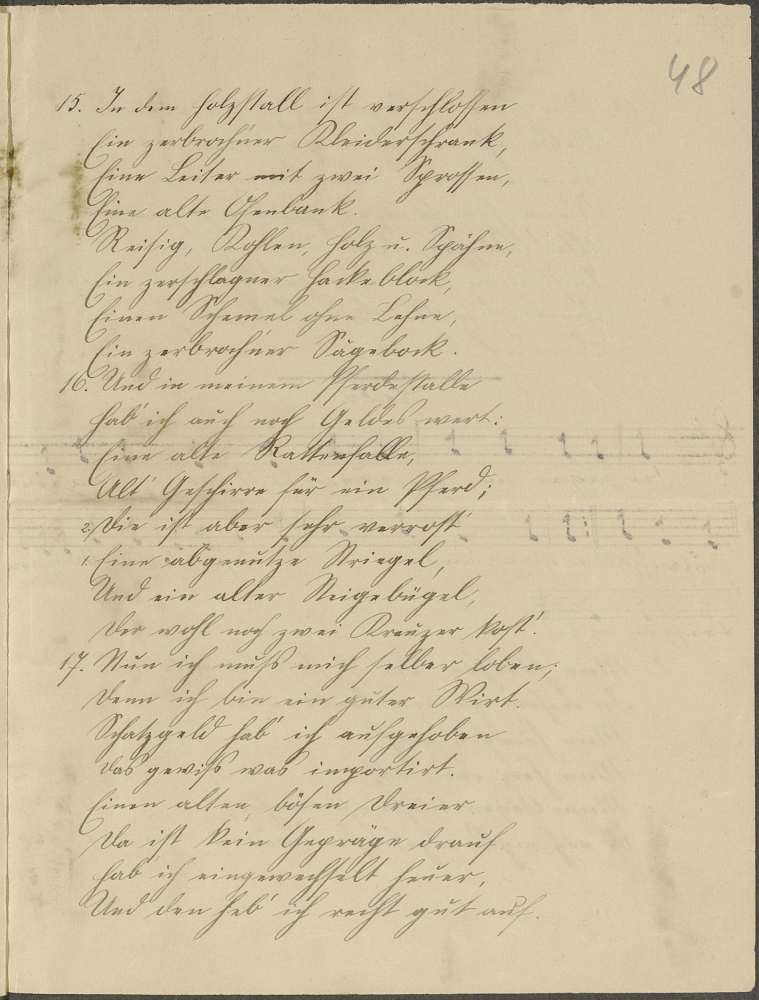 48
15. In dem Holzstall ist verschlossen
Ein zerbrochner Kleiderschrank,
Eine Leiter mit zwei Sprossen,
Eine alte Ofenbank.
Reisig, Kohlen, Holz u. Spähne,
Ein zerschlagner Hackeblock,
Einen Schemel ohne Lehne,
Ein zerbroch'ner Sägebock.
16. Und in meinem Pferdestalle
Hab' ich auch noch Geldes wert:
Eine alte Rattenfalle,
Alt' Geschirre für ein Pferd;
2. Die ist aber sehr verrost'
1. Eine abgenutze Striegel,
Und ein alter Steigebügel,
Der wohl noch zwei Kreuzer kost'.
17. Nun ich muß mich selber loben;
Denn ich bin ein guter Wirt.
Schatzgeld hab' ich aufgehoben
Das gewiß was importirt.
Einen alten, bösen Dreier
Da ist kein Gepräge drauf
Hab' ich eingewechselt heuer,
Und den heb' ich recht gut auf.